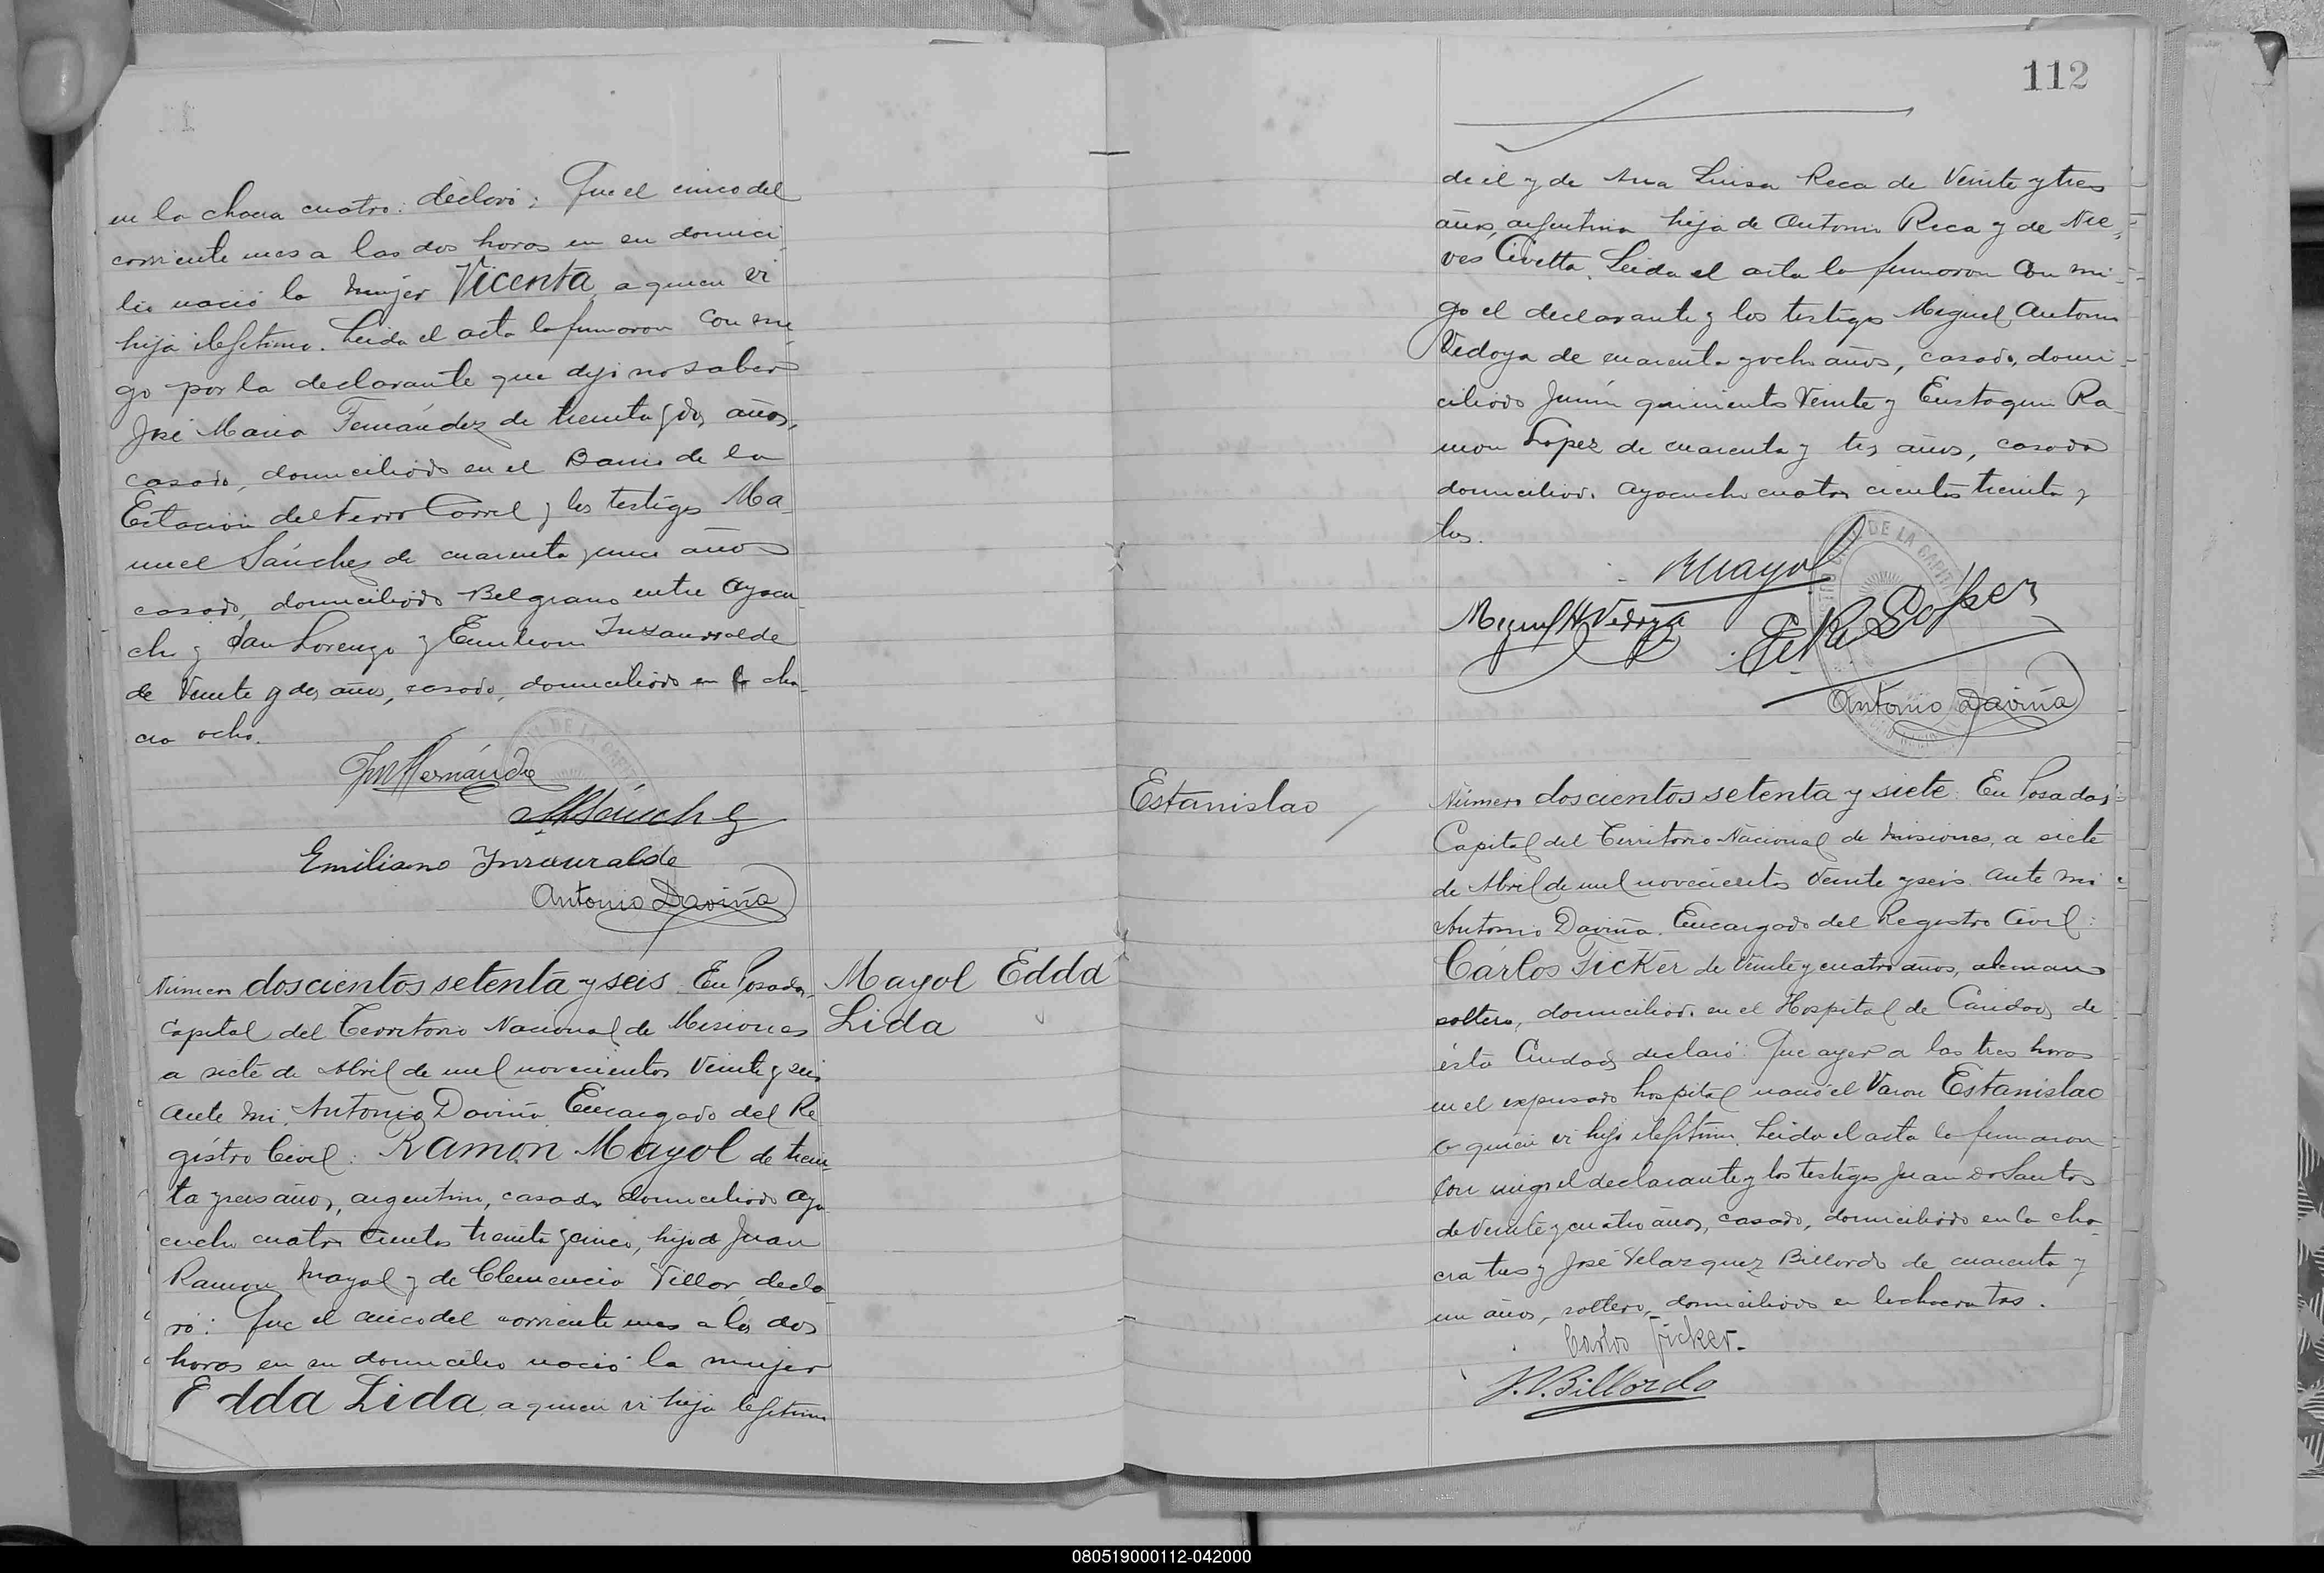 en la chacra cuatro: declaró: Que el cinco del
corriente mes a las dos horas en su domici
lio nació la mujer Vicenta, a quien vi
hija ilegítima. Leida el acta la firmaron con mi
go por la declarante que dijo no saber
José Maria Fernández de treinta y dos años,
casado, domiciliado en el Barrio de la
Estacion del Ferro Carril y los testigos Ma
nuel Sánchez de cuarenta y años
casado, domiciliado Belgrano entre Ayacu
cho y San Lorenzo y Emiliano Insaurralde
de Veinte y dos años, casado, domiciliado en la cha
cra ocho.
M Sánchez
Emiliano Insaurralde
Antonio Daviña
Número doscientos setenta y seis En Posadas,
Capital del Territorio Nacional de Misiones
a siete de Abril de mil novecientos Veinte y seis
ante mi, Antonio Daviña Encargado del Re
gistro Civil: Ramon Mayol de trein
ta y seis años, argentino, casado domiciliado Aya
cucho cuatro cientos treinta y cinco, hijo de Juan
Ramon Mayol y de Clemencia Villar, decla
ró: Que el cinco del corriente mes a las dos
horas en su domicilio nació la mujer
Edda Lida, a quien vi hija legítima
Mayol Edda
Lida
112
de él y de Ana Luisa Reca de Veinte y tres
años, argentina hija de Antonio Reca y de Nie
ves Civetta. Leida el acta la firmaron con mi
go el declarante y los testigos Miguel Antonio
Vedoya de cuarenta y ocho años, casado, domi
ciliado Junín quinientos Veinte y Eustaquio Ra
mon Lopez de cuarenta y tres años, casado
domiciliado Ayacucho cuatro cientos treinta y
tres.
RMayol
Miguel A Vedoya
E. R. Lopez
Antonio Daviña
Estanislao
Número doscientos setenta y siete: En Posadas
Capital del Territorio Nacional de Misiones, a siete
de Abril de mil novecientos Veinte y seis ante mi
Antonio Daviña. Encargado del Registro Civil:
Cárlos Ficker de Veinte y cuatro años, aleman
soltero, domiciliado en el Hospital de Caridad de
ésta Ciudad, declaró: Que ayer a las tres horas
en el expresado hospital nació el Varon Estanislao
a quien vi hijo ilegítimo. Leida el acta la firmaron
con migo el declarante y los testigos Juan do Santos
de Veinte y cuatro años, casado, domiciliado en la cha
cra tres y José Velazquez Billordo de cuarenta y
un años, soltero, domiciliado en la chacra tres.
Carlos Ficker.
J. V. Billordo
080519000112-042000